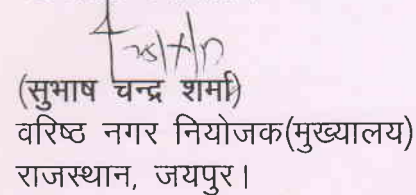 (सुभाष चन्द्र शर्मा)
वरिष्ठ नगर नियोजक(मुख्यालय)
राजस्थान, जयपुर।